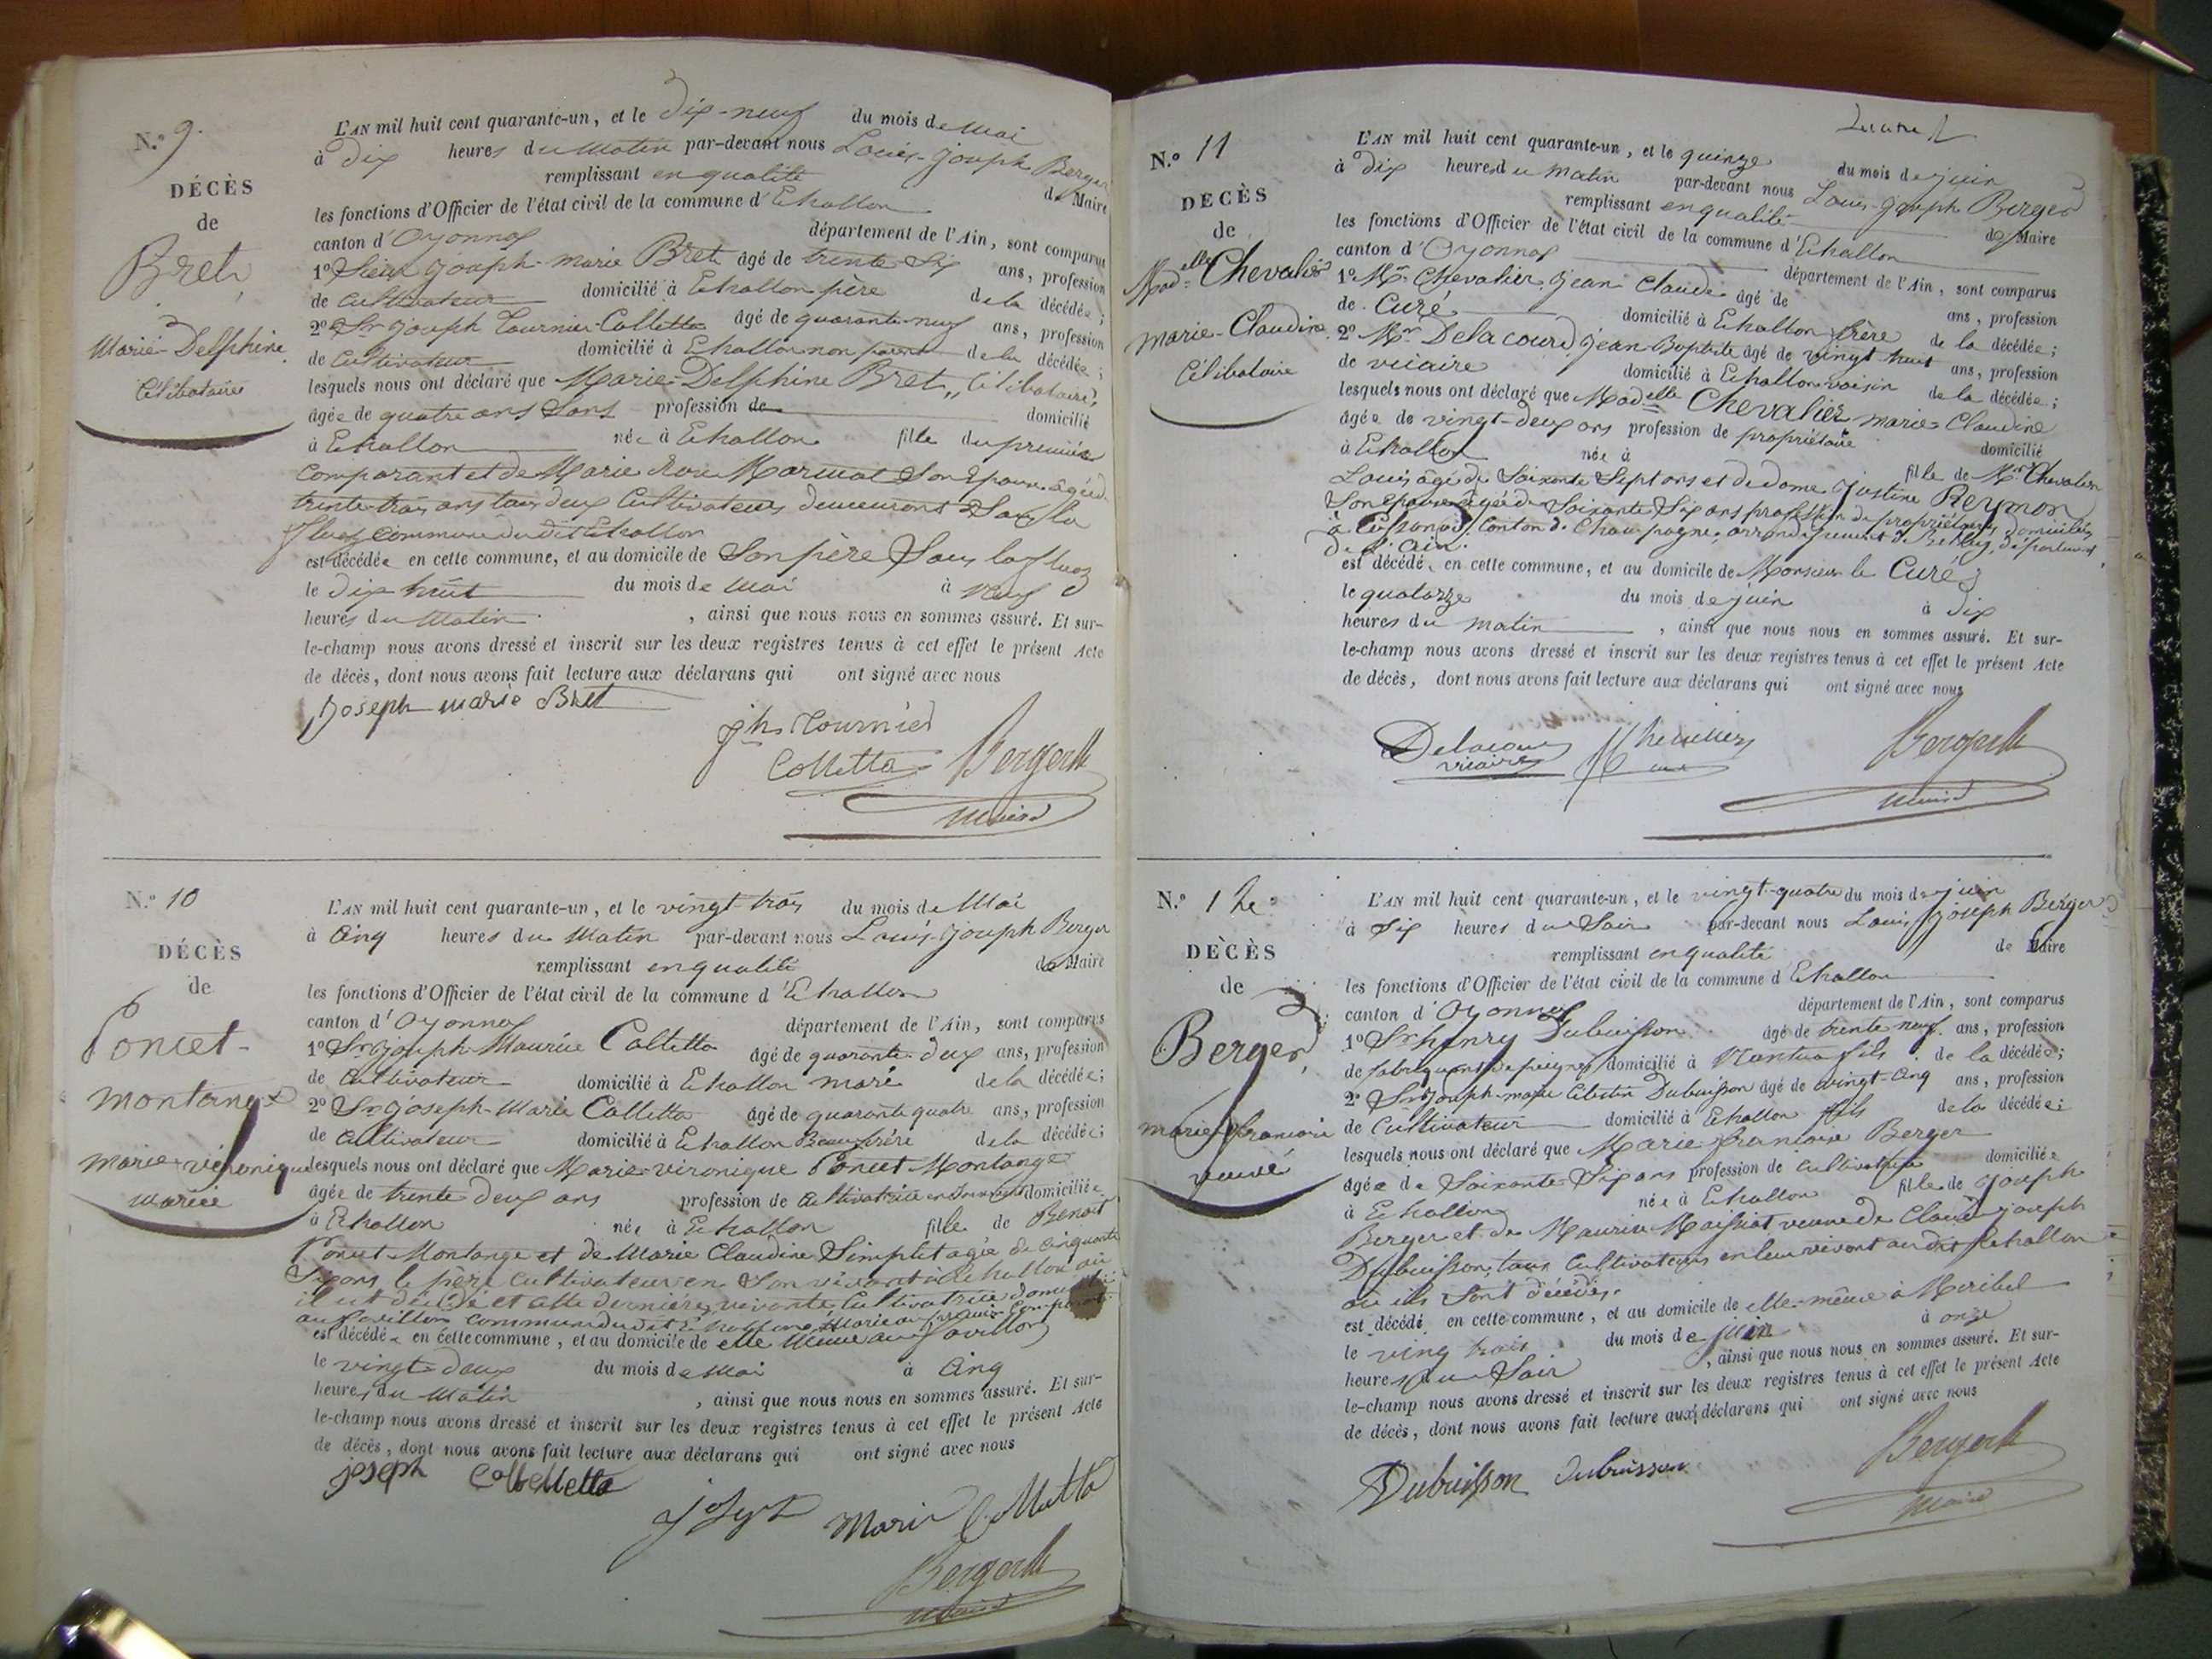 N.º 9.
DÉCÈS
de
Bret,
Marie Delphine
Célibataire
L'AN mil huit cent quarante-un, et le dix-neuf du mois de Mai
à Dix heures du Matin par-devant nous Louis-Joseph Berger
remplissant en qualité de Maire
les fonctions d'Officier de l'état civil de la commune d'Echallon
canton d'Oyonnax département de l'Ain, sont comparus
1º Sieur Joseph-Marie Bret âgé de trente Six ans, profession
de Cultivateur domicilié à Echallon père de la décédée;
2º Sr Joseph Tournier-Colletta âgé de quarante-neuf ans, profession
de Cultivateur domicilié à Echallon non parent de la décédée;
lesquels nous ont déclaré que Marie-Delphine Bret, Célibataire,
âgée de quatre ans Sans profession de domicilié
à Echallon née à Echallon fille du premier
Comparant et de Marie Marmot Son Epouse âgée de
trente-trois ans tous deux Cultivateurs demeurant Sous la
commune du dit Echallon
est décédée en cette commune, et au domicile de Son père Sous la
le dix huit du mois de Mai à Neuf
heures du Matin, ainsi que nous nous en sommes assuré. Et sur-
le-champ nous avons dressé et inscrit sur les deux registres tenus à cet effet le présent Acte
de décès, dont nous avons fait lecture aux déclarans qui ont signé avec nous
Joseph marie Bret
Jh Tournier
Colletta Berger
Maire
N.º 10
DÉCÈS
de
Poncet-
Montange
Marie-véronique
Mariée
L'AN mil huit cent quarante-un, et le vingt-trois du mois de Mai
à Cinq heures du Matin par-devant nous Louis-Joseph Berger
remplissant en qualité de Maire
les fonctions d'Officier de l'état civil de la commune d'Echallon
canton d'Oyonnax département de l'Ain, sont comparus
1º Sr Joseph-Maurice Colletta âgé de quarante-deux ans, profession
de Cultivateur domicilié à Echallon mari de la décédée;
2º Sr Joseph-Marie Colletta âgé de quarante quatre ans, profession
de Cultivateur domicilié à Echallon Beau frère de la décédée;
lesquels nous ont déclaré que Marie-véronique Poncet Montange
âgée de trente deux ans profession de Cultivatrice en Son vivant domiciliée
à Echallon née à Echallon fille de Benoit
Poncet Montange et de Marie Claudine Simplet agée de cinquante
Six ans le père Cultivateur en Son vivant à Echallon où
il est décédé et cette dernière vivante Cultivatrice
au Favillon commune du dit Echallon Mariée au premier Comparant
est décédée en cette commune, et au domicile de elle Même au Favillon
le vingt-deux du mois de Mai à Cinq
heures du Matin, ainsi que nous nous en sommes assuré. Et sur-
le-champ nous avons dressé et inscrit sur les deux registres tenus à cet effet le présent Acte
de décès, dont nous avons fait lecture aux déclarans qui ont signé avec nous
joseph Colletta
Joseph Marie Colletta
Berger
Maire
N.º 11
DÉCÈS
de
Madelle Chevalier
Marie-Claudine
Célibataire
L'AN mil huit cent quarante-un, et le quinze du mois de juin
à Dix heures du Matin par-devant nous Louis-Joseph Berger
remplissant en qualité de Maire
les fonctions d'Officier de l'état civil de la commune d'Echallon
canton d'Oyonnax département de l'Ain, sont comparus
1º Mr Chevalier, Jean Claude âgé de ans, profession
de Curé domicilié à Echallon frère de la décédée;
2º Mr Delacourd, Jean-Baptiste âgé de vingt huit ans, profession
de vicaire domicilié à Echallon voisin de la décédée;
lesquels nous ont déclaré que Madelle Chevalier Marie Claudine
âgée de vingt-deux ans profession de propriétaire domicilié
à Echallon née à fille de Mr Chevalier
Louis âgé de Soixante Sept ans et de dame Justine Reymon
Son épouse âgée de Soixante Six ans profession de propriétaires domiciliés
à Canton de Champagne, arrondissement de Belley, département
De l'Ain.
est décédée en cette commune, et au domicile de Monsieur le Curé
le quatorze du mois de juin à Dix
heures du Matin, ainsi que nous nous en sommes assuré. Et sur-
le-champ nous avons dressé et inscrit sur les deux registres tenus à cet effet le présent Acte
de décès, dont nous avons fait lecture aux déclarans qui ont signé avec nous
Delacour Chevalier Berger
vicaire curé
Maire
N.º 12
DÉCÈS
de
Berger,
Marie-françoise
veuve
L'AN mil huit cent quarante-un, et le vingt-quatre du mois de juin
à Six heures du Soir par-devant nous Louis-Joseph Berger
remplissant en qualité de Maire
les fonctions d'Officier de l'état civil de la commune d'Echallon
canton d'Oyonnax département de l'Ain, sont comparus
1º Sr henry Dubuisson âgé de trente neuf ans, profession
de fabriquant de peignes domicilié à Nantua fils de la décédée;
2º Sr Joseph-marie Célestin Dubuisson âgé de vingt-cinq ans, profession
de Cultivateur domicilié à Echallon fils de la décédée;
lesquels nous ont déclaré que Marie-françoise Berger
âgée de Soixante-Six ans profession de Cultivatrice domiciliée
à Echallon née à Echallon fille de Joseph
Berger et de Maurise Maissiat veuve de Claude Joseph
Dubuisson, tous Cultivateurs en leur vivant au dit Echallon
où ils Sont décédés.
est décédé en cette commune, et au domicile de elle-même à Miribel
le vingt trois du mois de juin à onze
heures du Soir, ainsi que nous nous en sommes assuré. Et sur-
le-champ nous avons dressé et inscrit sur les deux registres tenus à cet effet le présent Acte
de décès, dont nous avons fait lecture aux déclarans qui ont signé avec nous
Dubuisson Dubuisson Berger
Maire